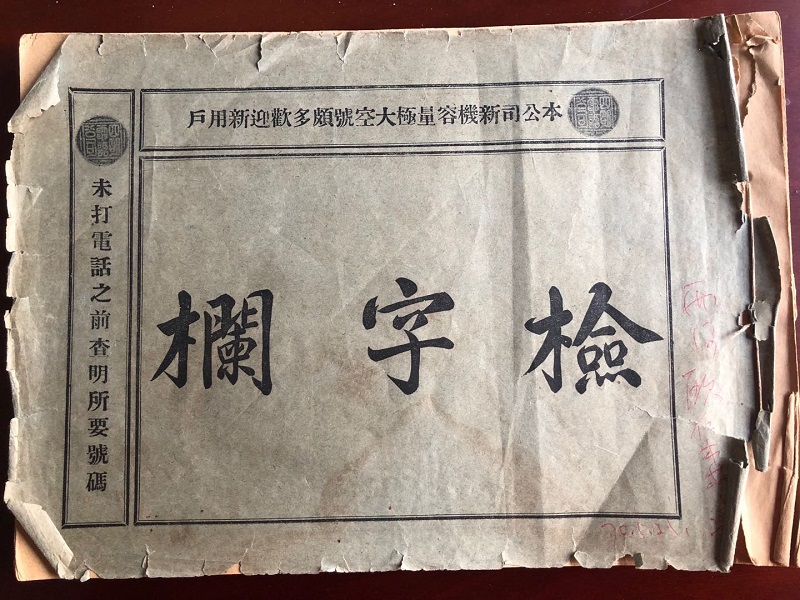 本公司新機容量極大空號頗多歡迎新用戶
檢字欄
未打電話之前查明所要號碼